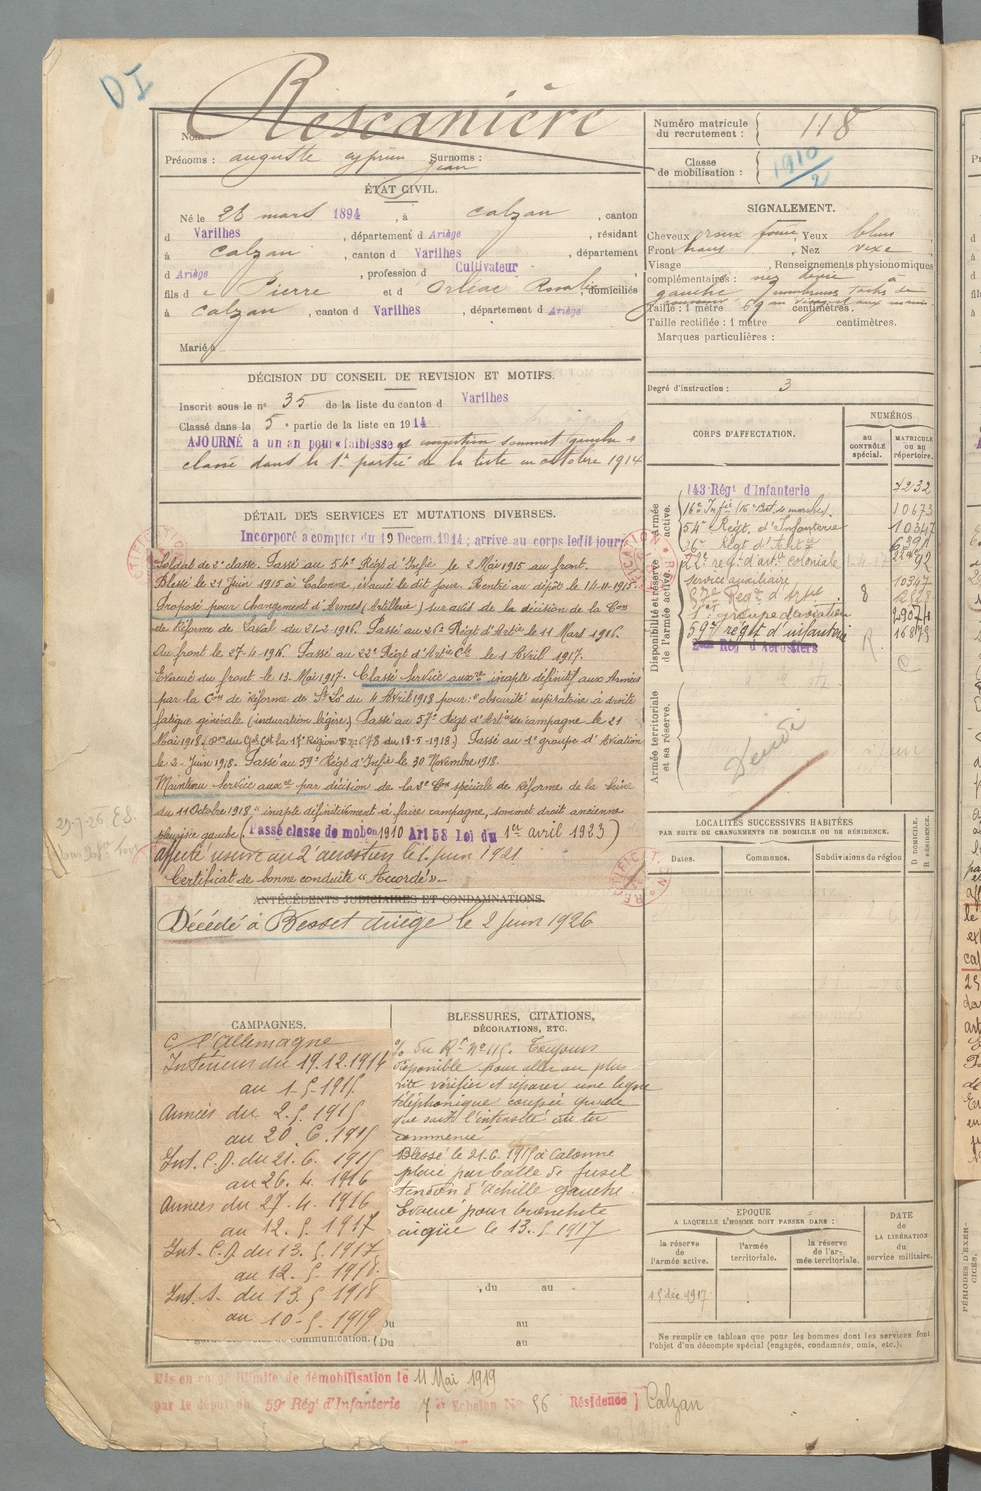 DI
Rescanière
Nom :
Prénoms : auguste cyprien Jean Surnoms :
Numéro matricule du recrutement : 118
Classe de mobilisation : 1910/2
ÉTAT CIVIL.
Né le 28 mars 1894, à Calzan, canton
d Varilhes, département d Ariège, résidant
à Calzan, canton d Varilhes, département
d Ariège, profession d Cultivateur
fils d e Pierre et d Orléac Rosalie, domiciliés
à Calzan, canton d Varilhes, département d Ariège
Marié à
SIGNALEMENT.
Cheveux roux foncé, Yeux bleus
Front haut, Nez vexe
Visage , Renseignements physionomiques
complémentaires : nez dévié à
gauche nombreuses taches de
rousseur au visage et aux mains.
Taille : 1 mètre 59 centimètres.
Taille rectifiée : 1 mètre centimètres.
Marques particulières :
Degré d'instruction : 3
DÉCISION DU CONSEIL DE REVISION ET MOTIFS.
Inscrit sous le n° 35 de la liste du canton d Varilhes
Classé dans la 5e partie de la liste en 1914
AJOURNÉ a un an pour « faiblesse et congestion sommet gauche »
classé dans la 1re partie de la liste en octobre 1914
DÉTAIL DES SERVICES ET MUTATIONS DIVERSES.
Incorporé a compter du 19 Décem. 1914 ; arrive au corps ledit jour
Soldat de 2e classe. Passé au 54e Régt d'Infie le 2 Mai 1915 au front.
Blessé le 21 Juin 1915 à Calonne, évacué le dit jour. Rentré au dépôt le 14-11-1915.
Proposé pour changement d'Armes (Artillerie) sur avis de la décision de la Con
de Réforme de Laval du 21-2-1916. Passé au 26e Régt d'Artie le 11 Mars 1916.
Au front le 27-4-1916. Passé au 22e Régt d'Artie Cle le 1 Avril 1917.
Evacué du front le 13 Mai 1917. Classé Service auxre inapte définitif aux Armées
par la Con de Réforme de St Lô du 4 Avril 1918 pour : "obscurité respiratoire à droite
fatigue générale (induration légère) Passé au 57e Régt d'Artie de campagne le 21
Mai 1918. (on du Gal Cdt la 17e Région N° 678 du 18-5-1918.) Passé au 1er groupe d'Aviation
le 2 Juin 1918. Passé au 59e Régt d'Infie le 30 Novembre 1918.
Maintenu Service auxre par décision de la 3e Con spéciale de Réforme de la Seine
du 11 Octobre 1918 "inapte définitivement à faire campagne, sommet droit ancienne
pleurésie gauche (Passé classe de mobon 1910 Art 58 loi du 1er avril 1923)
affecté réserve au 2e aérostiers le 1 Juin 1921
Certificat de bonne conduite « Accordé ».
ANTÉCÉDENTS JUDICIAIRES ET CONDAMNATIONS.
Décédé à Besset Ariège le 2 Juin 1926
CORPS D'AFFECTATION.
NUMÉROS
au CONTRÔLE spécial.
MATRICULE ou au répertoire.
Armée active.
Disponibilité et réserve de l'armée active.
Armée territoriale et sa réserve.
143 Régt d'Infanterie 7232
16e Infie (16e Bat. de marche) 10673
54e Régt. d'Infanterie 10342
26e Régt d'Artie 6391
22e régt d'arte coloniale
Service auxiliaire 10347
57e Régt d'Artie 8
1er groupe d'aviation 29074
59e régt d'infanterie 16878
2ème Rég d'Aérostiers
Décédé
LOCALITÉS SUCCESSIVES HABITÉES
PAR SUITE DE CHANGEMENTS DE DOMICILE OU DE RÉSIDENCE.
Dates.
Communes.
Subdivisions du région
D. DOMICILE.
R. RÉSIDENCE.
CAMPAGNES.
C. l'Allemagne
Intérieur du 19.12.1914
au 1-5-1915
Armées du 2.5.1915
au 20.6.1915
Int. C.D. du 21.6.1915
au 26.4.1916
Armées du 27.4.1916
au 12.5.1917
Int. C.D du 13.5.1917
au 12.5.1918
Int. S. du 13.5.1918
au 10-5-1919
BLESSURES, CITATIONS,
DÉCORATIONS, ETC.
% du Rt N° 115. Toujours
disponible pour aller au plus
vite vérifier et réparer une ligne
téléphonique coupée quelle
que soit l'intensité du tir
ennemi
Blessé le 21.6.1915 à Calonne
plaie par balle de fusil
tendon d'Achille gauche.
Evacué pour bronchite
aigüe le 13.5.1917
, du au
Du au
Du au
de communication.
EPOQUE
A LAQUELLE L'HOMME DOIT PASSER DANS :
la réserve de l'armée active.
l'armée territoriale.
la réserve de l'armée territoriale.
DATE de LA LIBÉRATION du service militaire.
15 déc. 1917
Ne remplir ce tableau que pour les hommes dont les services font
l'objet d'un décompte spécial (engagés, condamnés, omis, etc.).
Mis en congé illimité de démobilisation le 11 Mai 1919
par le dépôt du 59e Régt d'Infanterie 7e Echelon N° 56 Résidence Calzan
PÉRIODES D'EXER-
CICES,